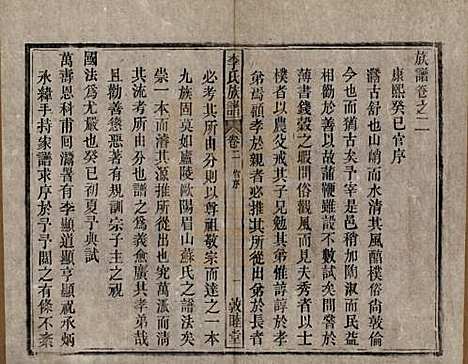 族譜卷之二
康熙癸巳官序
灊古舒也山峭而水清其風醇樸俗尚敦倫
今也而猶古矣予宰是邑前稍久淑而民益
相勸於善以故蒲鞭雖設不數試矣而間於
薄書錢穀之暇問俗觀風而見夫秀者以士
樸者以農父戒其子兄勉其弟惟諄諄於孝
弟焉顧孝於親者必推其所從出弟於長者
李氏族譜
卷二
官序
一
敦睦堂
必考其所由分則以尊祖敬宗而達之一本
九族固莫如廬陵歐陽眉山蘇氏之譜法矣
崇一本而清其所從出也究其所推而溥愛
其流者所由分也譜之為義會廣其孝弟哉
且勸善懲惡者訓寧宗子主之也
國法為尤嚴也癸巳初夏予與試
萬壽恩科甫回灊署有李顯道顯亨顯祝承炳
承緯手持家譜求序於予予閱之有條不紊